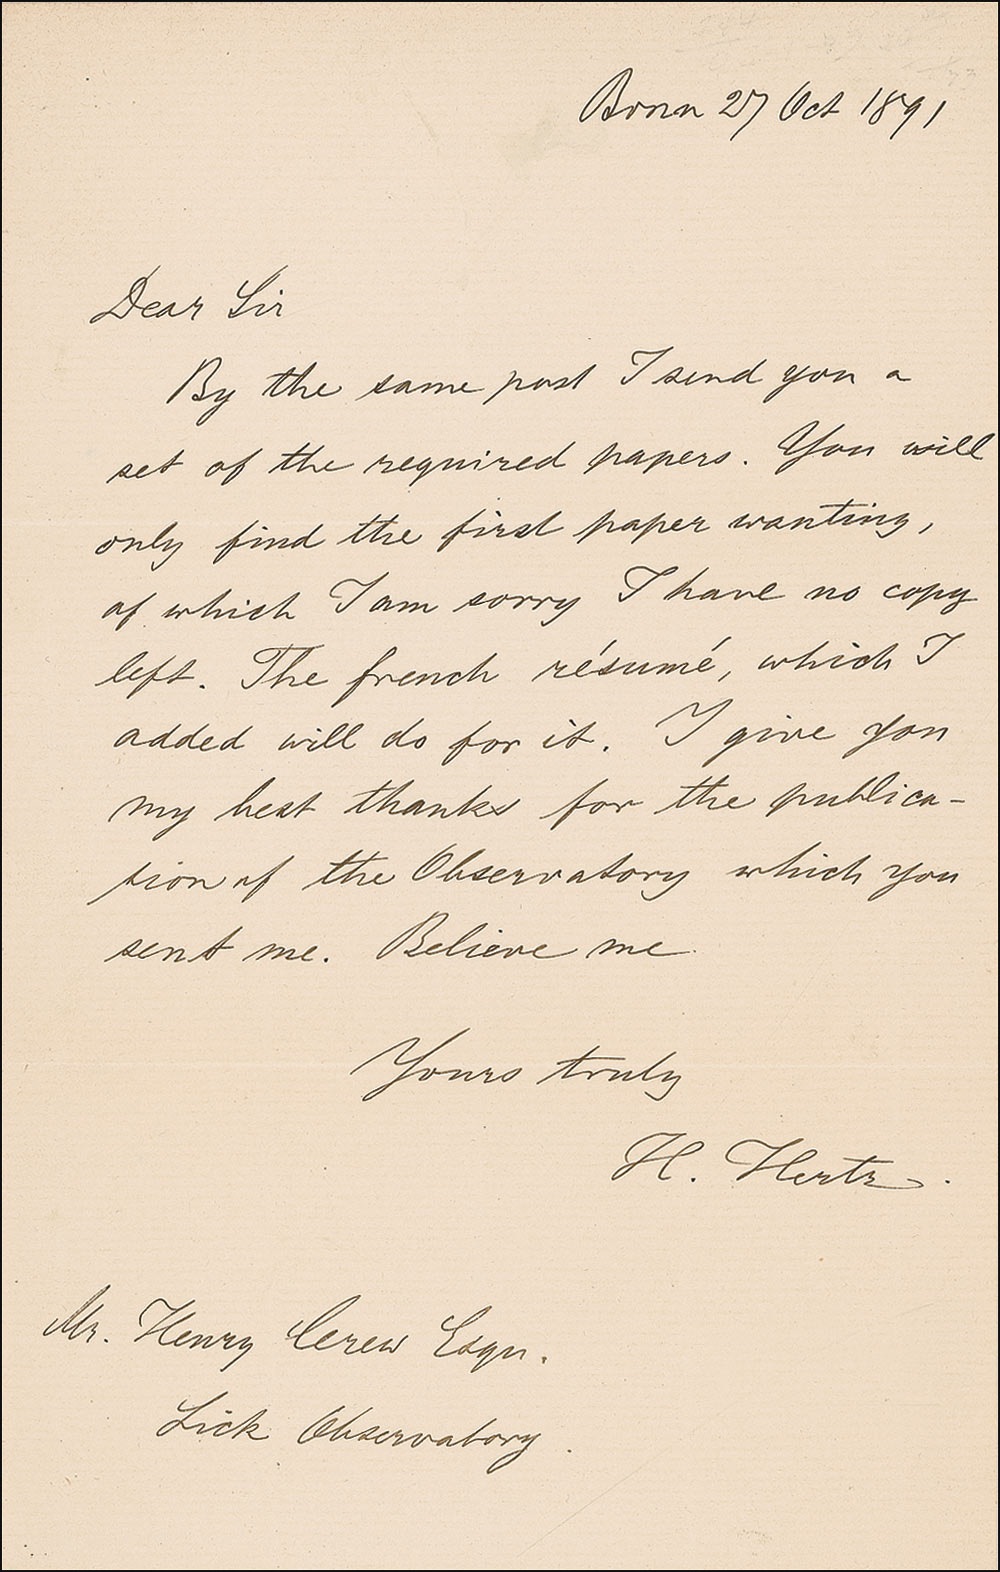 Bonn 27 Oct 1891
Dear Sir
By the same post I send you a
set of the required papers. You will
only find the first paper wanting,
of which I am sorry I have no copy
left. The french résumé, which I
added will do for it. I give you
my best thanks for the publica-
tion of the Observatory which you
sent me. Believe me
Yours truly
H. Hertz.
Mr. Henry Crew Esqu.
Lick Observatory.